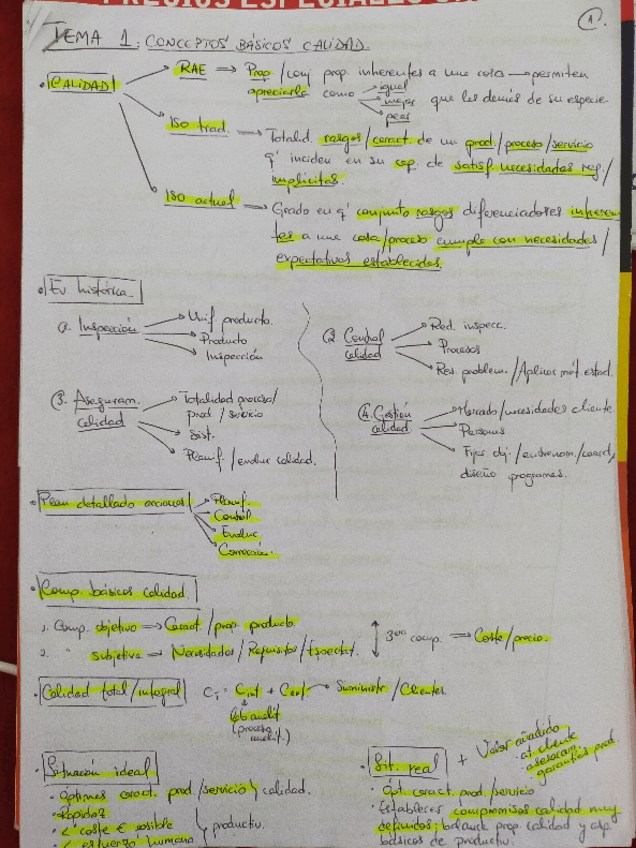 PRECIOS ESPECIALES
1
TEMA 1: CONCEPTOS BÁSICOS CALIDAD.
• CALIDAD
RAE ⇒ Prop /conj prop. inherentes a una cosa → permiten
apreciarla como igual
mejor que las demás de su especie.
peor
ISO trad. ⇒ Totalid. rasgos/caract. de un prod/proceso/servicio
q' inciden en su cap. de satisf. necesidades reg./
implícitas.
ISO actual ⇒ Grado en q' conjunto rasgos diferenciadores inheren
tes a una cosa/proceso cumple con necesidades/
expectativas establecidas.
• Ev histórica.
1. Inspección
Unif producto.
Producto
Inspección
2. Control calidad
Red. inspecc.
Procesos
Res. problem. /Aplicar mét. estad.
3. Aseguram. calidad
Totalidad proceso/
prod / servicio
Sist.
Planif / evaluc calidad.
4. Gestión calidad.
Mercado/necesidades cliente.
Personas
Fijar obj. /entrenam. /coord,
diseño programas.
• Plan detallado acciones
Planif.
Control
Evaluc
Corrección.
• Comp. básicos calidad
1. Comp. objetivo ⇒ Caract. / prop. producto.
2. " subjetivo ⇒ Necesidades/Requisitos/Expectat.
3er comp. ⇒ Coste/precio.
• Calidad total/integral
Ci = Cint + Cext → Suministr /Clientes
lab analit
(proceso
analit.)
• Situación ideal
• Óptimas caract. prod. /servicio } calidad.
• Rapidez
• < coste € posible
• < esfuerzo humano
} productiv.
• Sit. real + Valor añadido
• at. cliente
• asesoram.
• garantías prod.
• Ópt. caract. prod. /servicio
• Establecer compromisos calidad muy
definidos: balance prop. calidad y asp.
básicos de productiv.